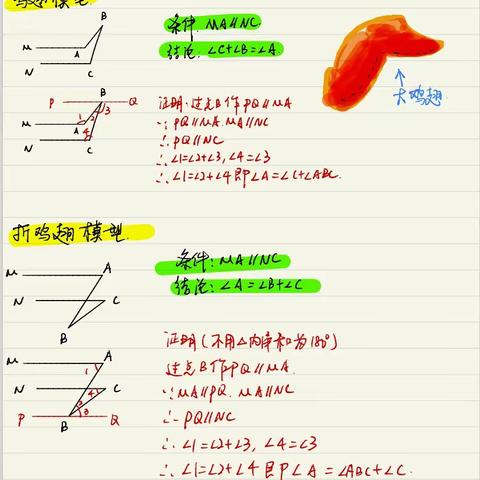 鸡翅模型
条件: MA∥NC
结论: ∠C+∠B=∠A
B
M
A
N
C
大鸡翅
P
B
Q
3
1
2
M
A
4
N
C
证明: 过点B作PQ∥MA
∵PQ∥MA. MA∥NC
∴PQ∥NC
∴∠1=∠2+∠3, ∠4=∠3
∴∠1=∠2+∠4 即∠A=∠C+∠ABC.
折鸡翅模型.
条件: MA∥NC
结论: ∠A=∠B+∠C
M
A
N
C
B
证明(不用△内角和为180°)
过点B作PQ∥MA.
∵MA∥PQ. MA∥NC
∴PQ∥NC
∴∠1=∠2+∠3, ∠4=∠3
∴∠1=∠2+∠4 即∠A=∠ABC+∠C.
M
A
1
N
4
C
3
P
B
Q